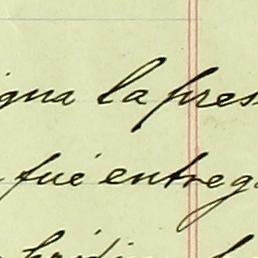 igna la pres
fué entreg